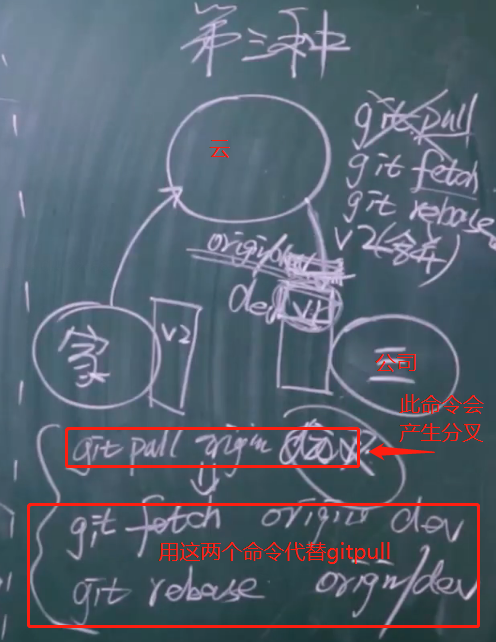 第三种
云
git pull
git fetch
git rebase
v2(合并)
origin/
dev
v1
家
v2
公司
三
此命令会
产生分叉
git pull origin dev
git fetch origin dev
用这两个命令代替gitpull
git rebase origin/dev